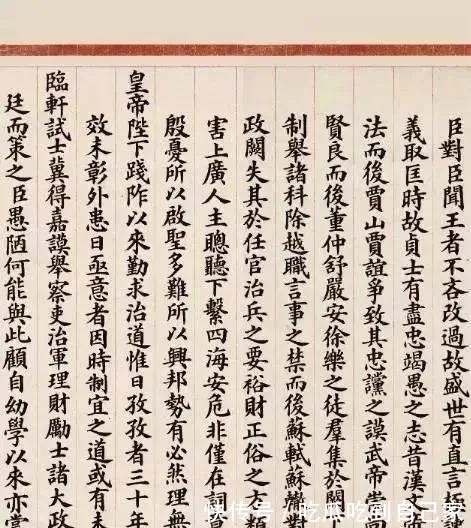 臣對臣聞王者不吝改過故盛世有直言
義取匡時故貞士有盡忠竭愚之志昔漢文
法而後賈山賈誼爭致其忠讜之謨武帝
賢良而後董仲舒嚴安徐樂之徒羣集於闕
制舉諸科除越職言事之禁而後蘇軾蘇轍對
政闕失其於任官治兵之要裕財正俗之方類
害上廣人主聰聽下繫四海安危非僅在詞
殷憂所以啟聖多難所以興邦勢有必然理無
皇帝陛下踐阼以來勤求治道惟日孜孜者三十年
效未彰外患日亟意者因時制宜之道或有未
臨軒試士冀得嘉謨舉察吏治軍理財勵士諸大政
廷而策之臣愚陋何能與此顧自幼學以來亦嘗
快传号/吃瓜吃到自己家